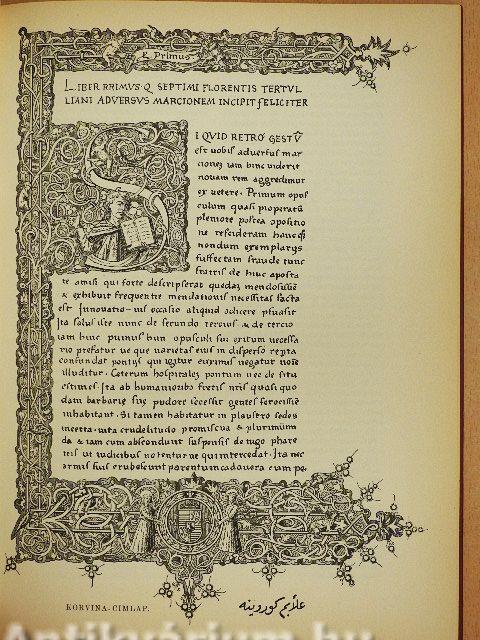 R Primus
LIBER PRIMUS · Q SEPTIMI FLORENTIS TERTUL
LIANI ADVERSVS MARCIONEM INCIPIT FELICITER
I QVID RETRO GESTŪ
est uobis aduersus mar
cionem iam hinc uiderit
nouam rem aggredimur
ex uetere. Primum opus
culum quasi properatū
pleniore postea opositio
ne rescideram hanc
nondum exemplarijs
suffectam fraude tunc
fratris de hinc aposta
te amisi qui forte descripserat quedam mendosissie
& exhibuit frequentie mendationis necessitas facta
est Innouatio-nis occasio aliquid adicere psuasit
Ita stilus iste nunc de secundo tercius & de tercio
iam hinc primus hun opusculi sui exitum necessa
rio prefatur ne quem uarietas eius in disperso repta
confundat pontus qui igitur euxinus negatur noie
illuditur. Ceterum hospitales pontum nec de situ
estimes. Ita ab humanioribus fretis nris quasi quo
dam barbarie sue pudore secessit gentes ferocissie
inhabitant. Si tamen habitatur in plaustro sedes
incerta. uita crudelitudo promiscua & plurimum
da & iam cum abscondunt suspensis de iugo phare
tris ut iudicibus notentur ne qui intercedat. Ita nec
armis suis erubescunt parentum cadauera cum pe
KORVINA-CIMLAP.
علايم كوروينه
Antikvárium.hu